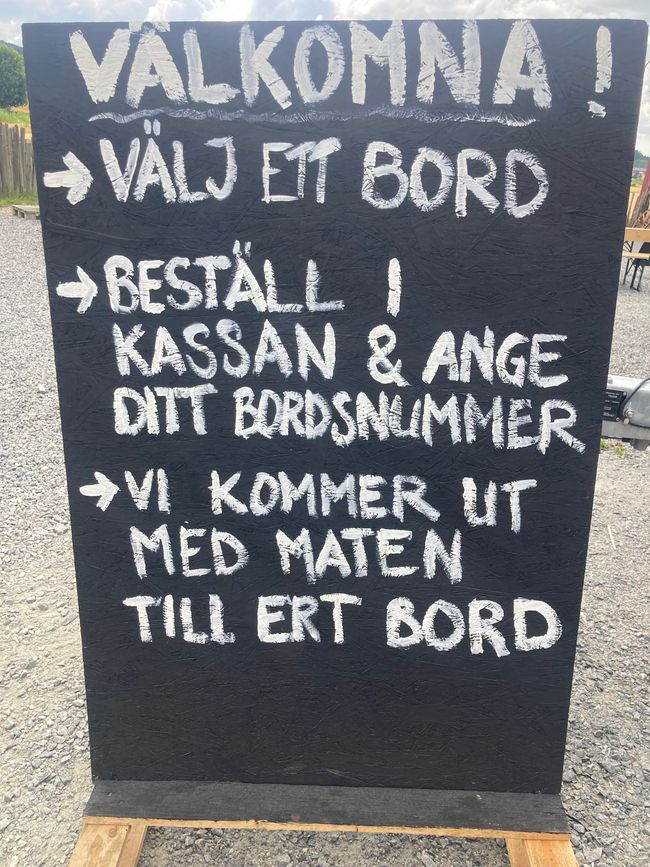 VÄLKOMNA!
→ VÄLJ ETT BORD
→ BESTÄLL I
KASSAN & ANGE
DITT BORDSNUMMER
→ VI KOMMER UT
MED MATEN
TILL ERT BORD